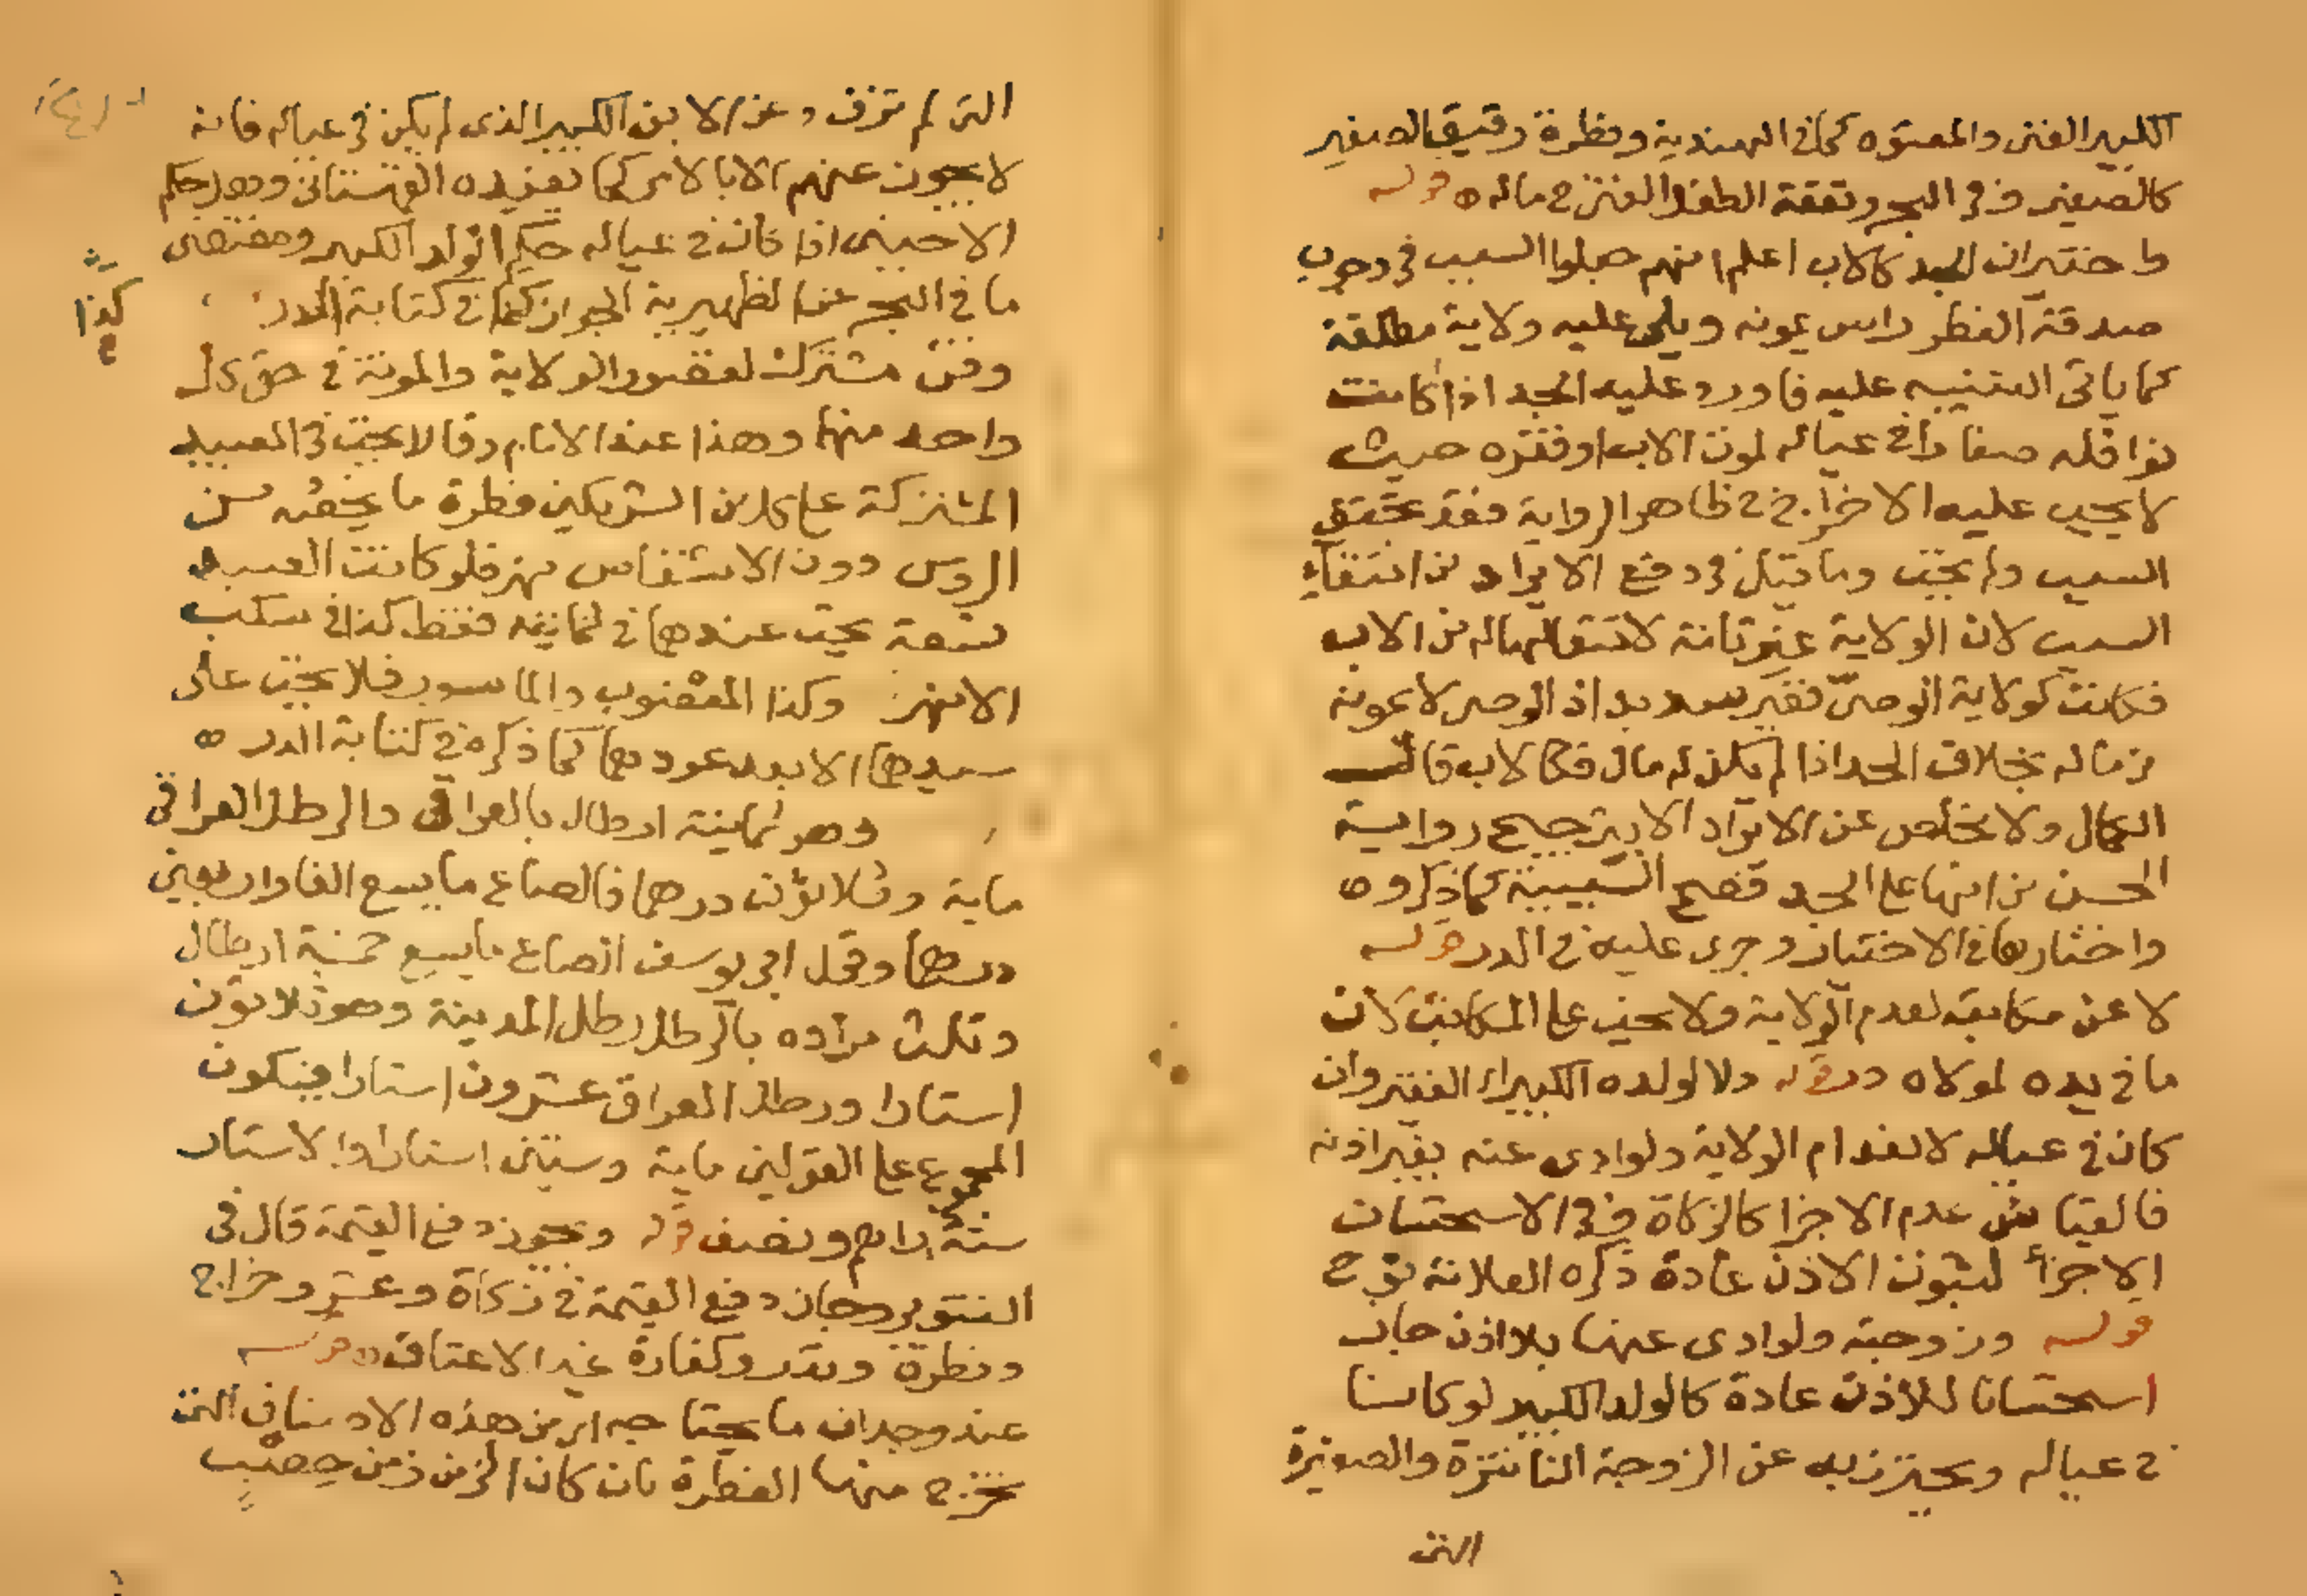 الكبير الغنى والمعتوه كما فى الهندية وفطرة رقيق الصغير
كالصغير وفى البحر ونفقة الطفل الغنى فى ماله ه قوله
واختير ان الجد كالاب اعلم انهم جعلوا السبب فى وجوب
صدقة الفطر راس يمونه ويلى عليه ولاية مطلقة
كما ياتى التنبيه عليه فاورد عليه الجد اذا كانت
نوافله صغارا فى عياله لموت الاب او فقره حيث
لا يجب عليه الاخراج فى ظاهر الرواية فقد تحقق
السبب ولم تجب وما قيل فى دفع الايراد من انتفاء
السبب لان الولاية غير تامة لانتقالها له من الاب
فكانت كولاية الوصى فغير سديد اذ الوصى لا يمونه
من ماله بخلاف الجد اذا لم يكن له مال فكالاب قال
الكمال ولا مخلص عن الايراد الا بترجيح رواية
الحسن من انها على الجد فصح السببية كما ذكروه
واختارها فى الاختيار وجرى عليه فى الدرر قوله
لا عن مكاتبه لعدم الولاية ولا تجب على المكاتب لان
ما فى يده لمولاه درر قوله ولا لولده الكبير اى الفقير وان
كان فى عياله لانعدام الولاية ولو ادى عنه بغير اذنه
فالقياس عدم الاجزا كالزكاة وفى الاستحسان
الاجزأ لثبوت الاذن عادة ذكره العلامة نوح
قوله وزوجته ولو ادى عنها بلا اذن جاز
استحسانا للاذن عادة كالولد الكبير لو كانا
فى عياله ويحترز به عن الزوجة الناشزة والصغيرة
التى
التى لم تزف وعن الابن الكبير الذى لم يكن فى عياله فانه
لا يجوز عنهم الا بالامر كما يفيده القهستانى وهل حكم
الاجنبى اذا كان فى عياله حكم الولد الكبير ومقتضى
ما فى البحر عن الظهيرية الجواز كما فى كتابة الدرر
كذا
وقن مشترك لقصور الولاية والمونة فى حق كل
واحد منهما وهذا عند الامام وقالا تجب فى العبيد
المشتركة على كل من الشريكين فطرة ما يخصه من
الروس دون الاشقاص نهر فلو كانت العبيد
تسعة تجب عندهما فى ثمانية فقط كذا فى سكب
الانهر وكذا المغصوب والماسور فلا تجب على
سيدهما الا بعد عودهما كما ذكره فى كتابة الدرر ه
وهو ثمانية ارطال بالعراقى والرطل العراقى
ماية وثلاثون درهما فالصاع ما يسع الفا واربعين
درهما وقول ابى يوسف الصاع ما يسع خمسة ارطال
وثلث مراده بالرطل رطل المدينة وهو ثلاثون
استارا ورطل العراق عشرون استارا فيكون
المجموع على القولين ماية وستين استارا والاستار
ستة دراهم ونصف قوله ويجوز دفع القيمة قال فى
التنوير وجاز دفع القيمة فى زكاة وعشر وخراج
وفطرة ونذر وكفارة غير الاعتاق ه قوله
عند وجدان ما يحتاجه اى من هذه الاصناف التى
تخرج منها الفطرة بان كان الزمن زمن خصب